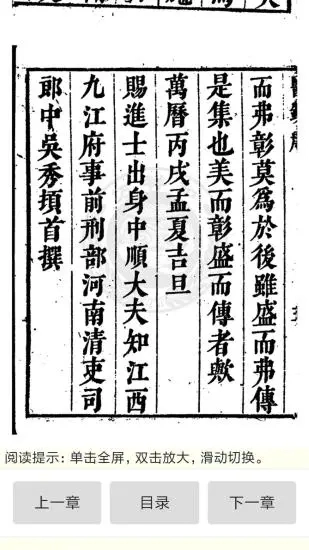 而弗彰莫爲於後雖盛而弗傳
是集也美而彰盛而傳者歟
萬曆丙戌孟夏吉旦
賜進士出身中順大夫知江西
九江府事前刑部河南清吏司
郎中吳秀頓首撰
阅读提示：单击全屏，双击放大，滑动切换。
上一章
目录
下一章